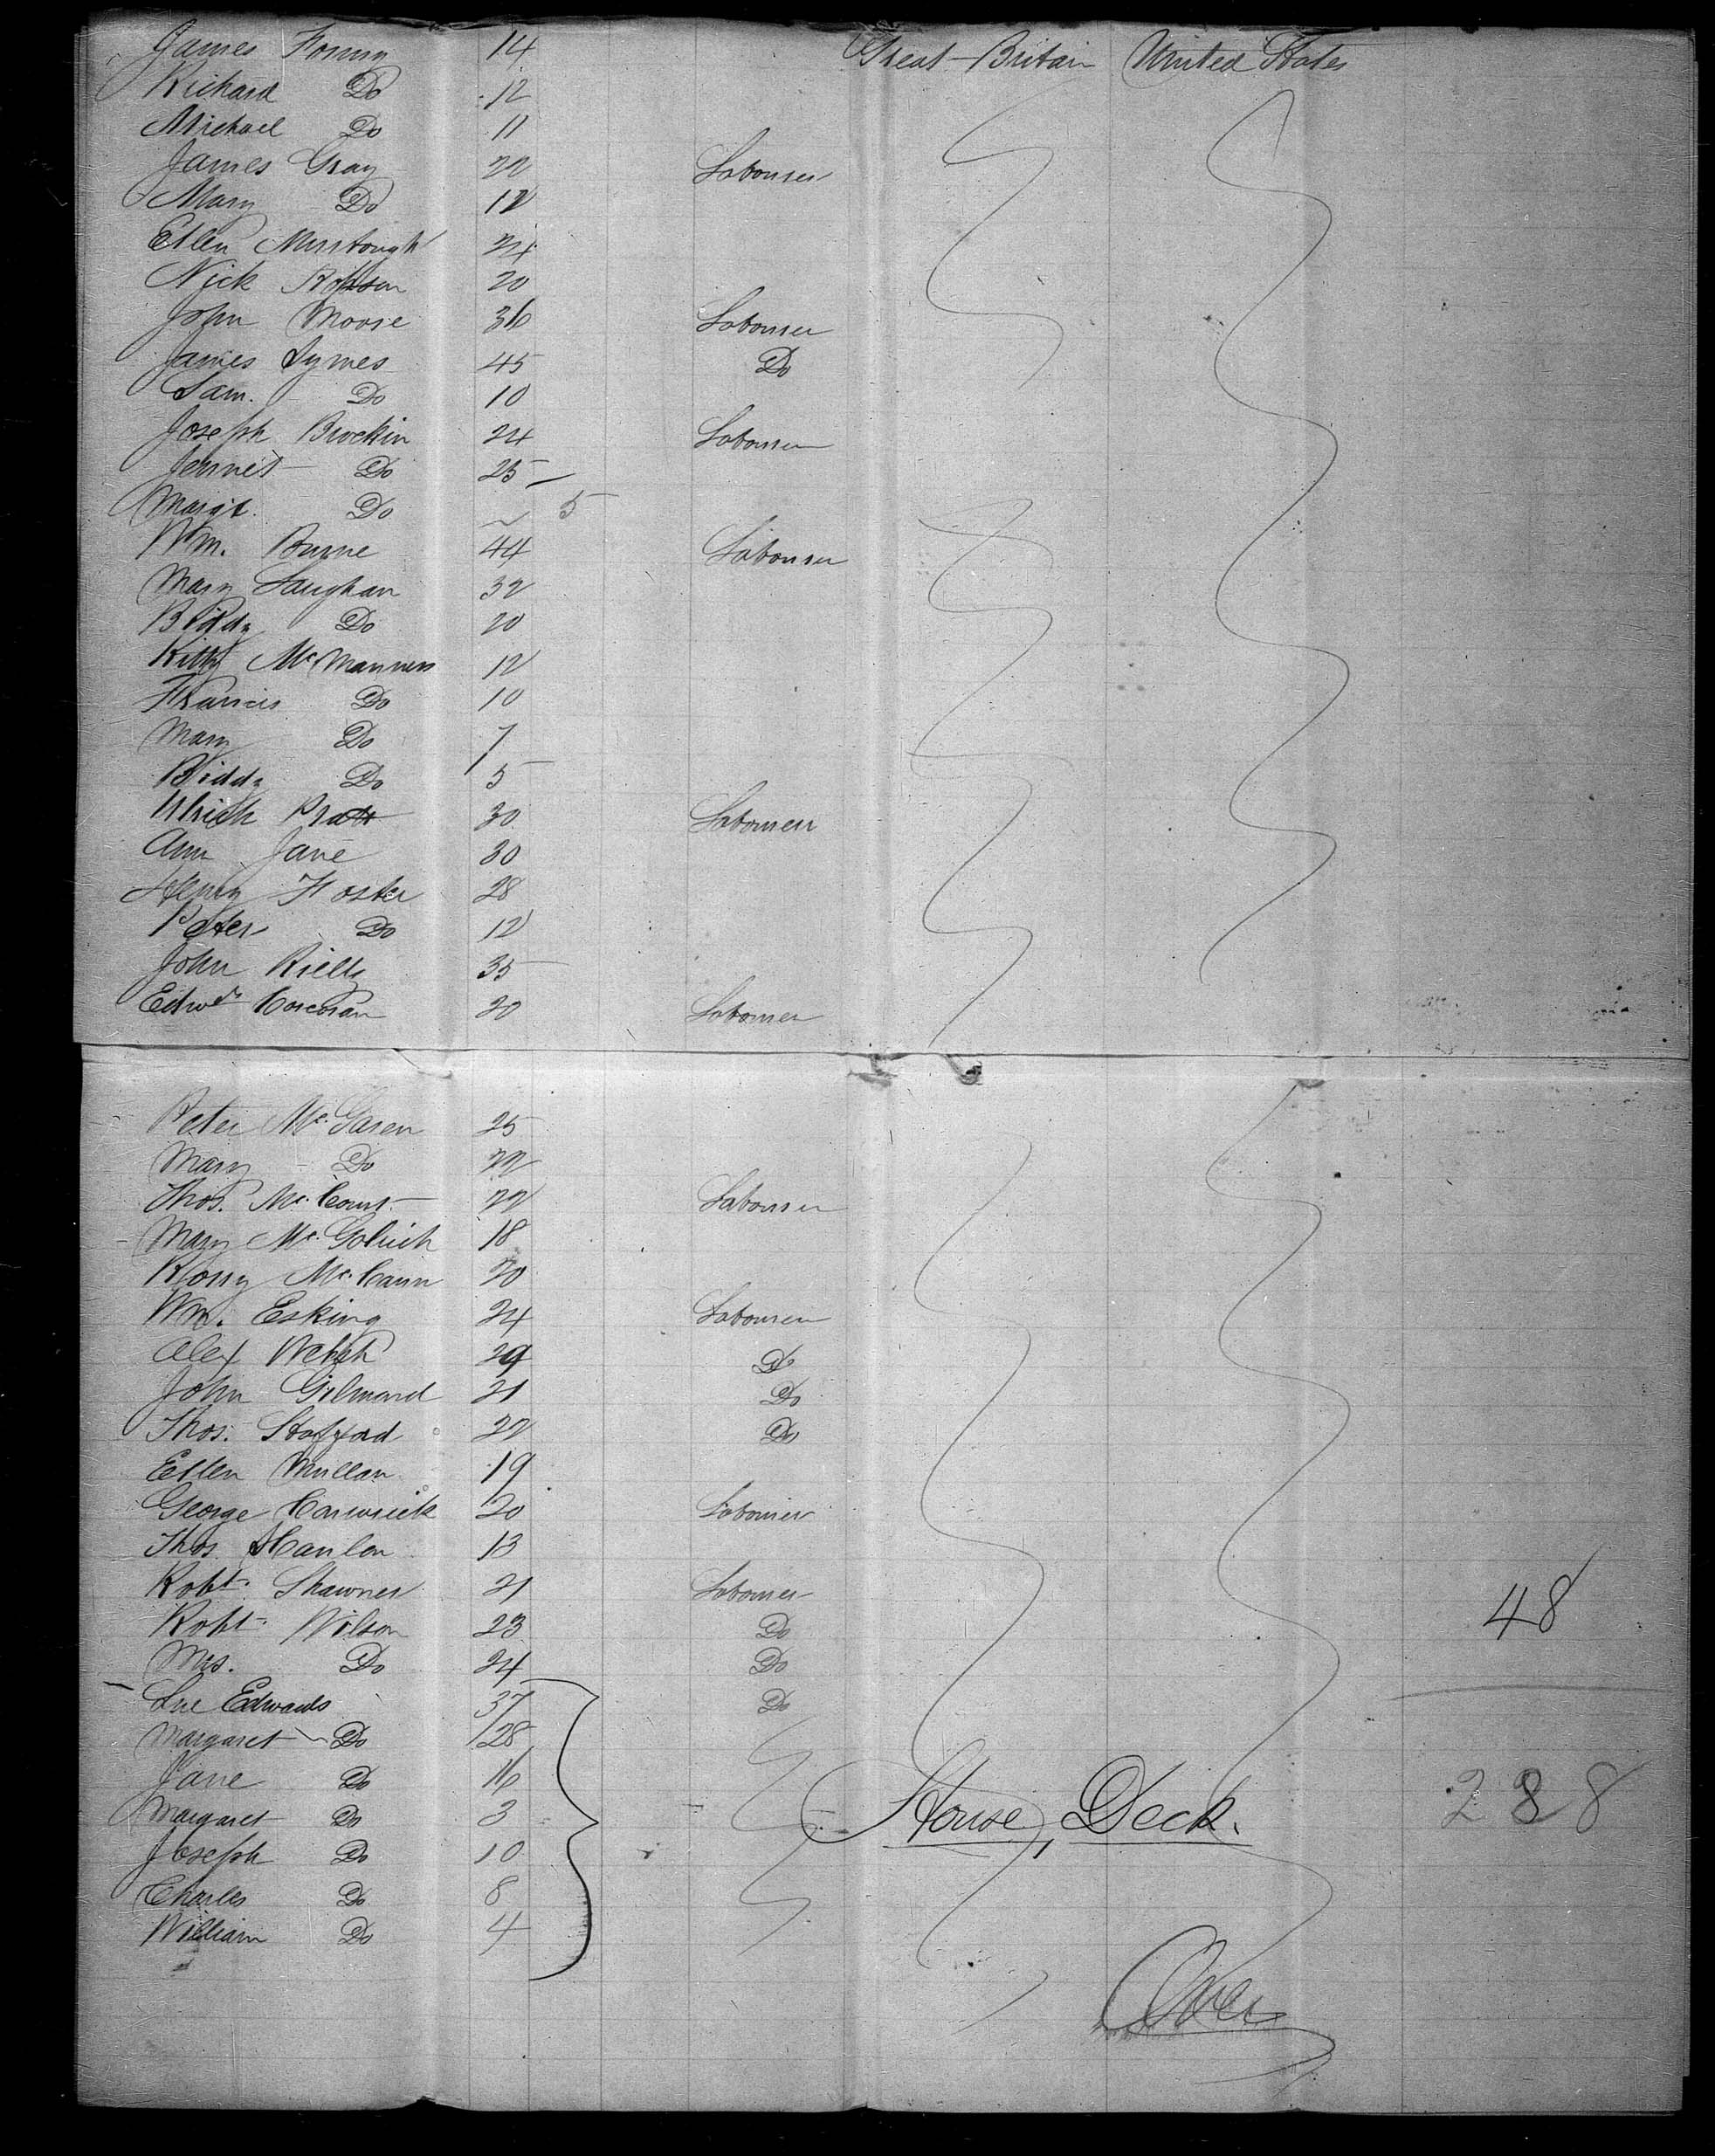 James 14 Great Britain United States
Richard Do 12
Michael Do 11
James Gray 22 Labourer
Mary Do 12
Ellen 24
Nick 20
John Moore 36 Labourer
James Symes 45 Do
Sam. Do 10
Joseph Brockin 24 Labourer
Jennet Do 25
Margt. Do 5
Wm. Burne 44 Labourer
Mary Laughan 32
Biddy Do 20
Kitty McManners 12
Francis Do 10
Mary Do 7
Biddy Do 5
Ulrich Pratt 30 Labourer
Ann Jane 30
Henry Foster 28
Peter Do 12
John Rielly 35
Edwd. Corcoran 20 Labourer
Peter Mc. 25
Mary Do 22
Thos. Mc. Court 22 Labourer
Mary Mc. 18
Rosy Mc. Cann 20
Wm. Esking 24 Labourer
Alex Welsh 29 Do
John Gilmard 21 Do
Thos. Stafford 22 Do
Ellen Mullan 19
George Carwick 20 Labourer
Thos. Hanlon 13
Robt. Shawner 21 Labourer 48
Robt. Wilson 23 Do
Mrs. Do 24 Do
Edwards 37 Do
Margaret Do 28
Jane Do 16
Margaret Do 3 House, Deck. 288
Joseph Do 10
Charles Do 8
William Do 4
Over